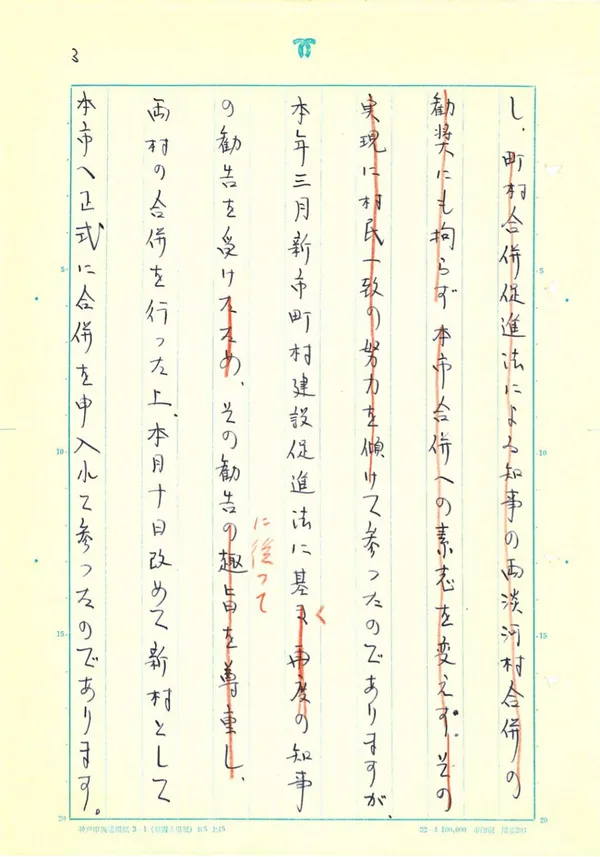 3
し、町村合併促進法による知事の両淡河村合併の
勧奨にも拘らず本市合併への素志を変えず、その
実現に村民一致の努力を傾けて参ったのでありますが、
本年三月新市町村建設促進法に基き再度の知事
く
の勧告を受けたため、その勧告の趣旨を尊重し、
に従って
両村の合併を行った上、本月十日改めて新村として
本市へ正式に合併を申入れて参ったのであります。
5
10
15
20
5
10
15
20